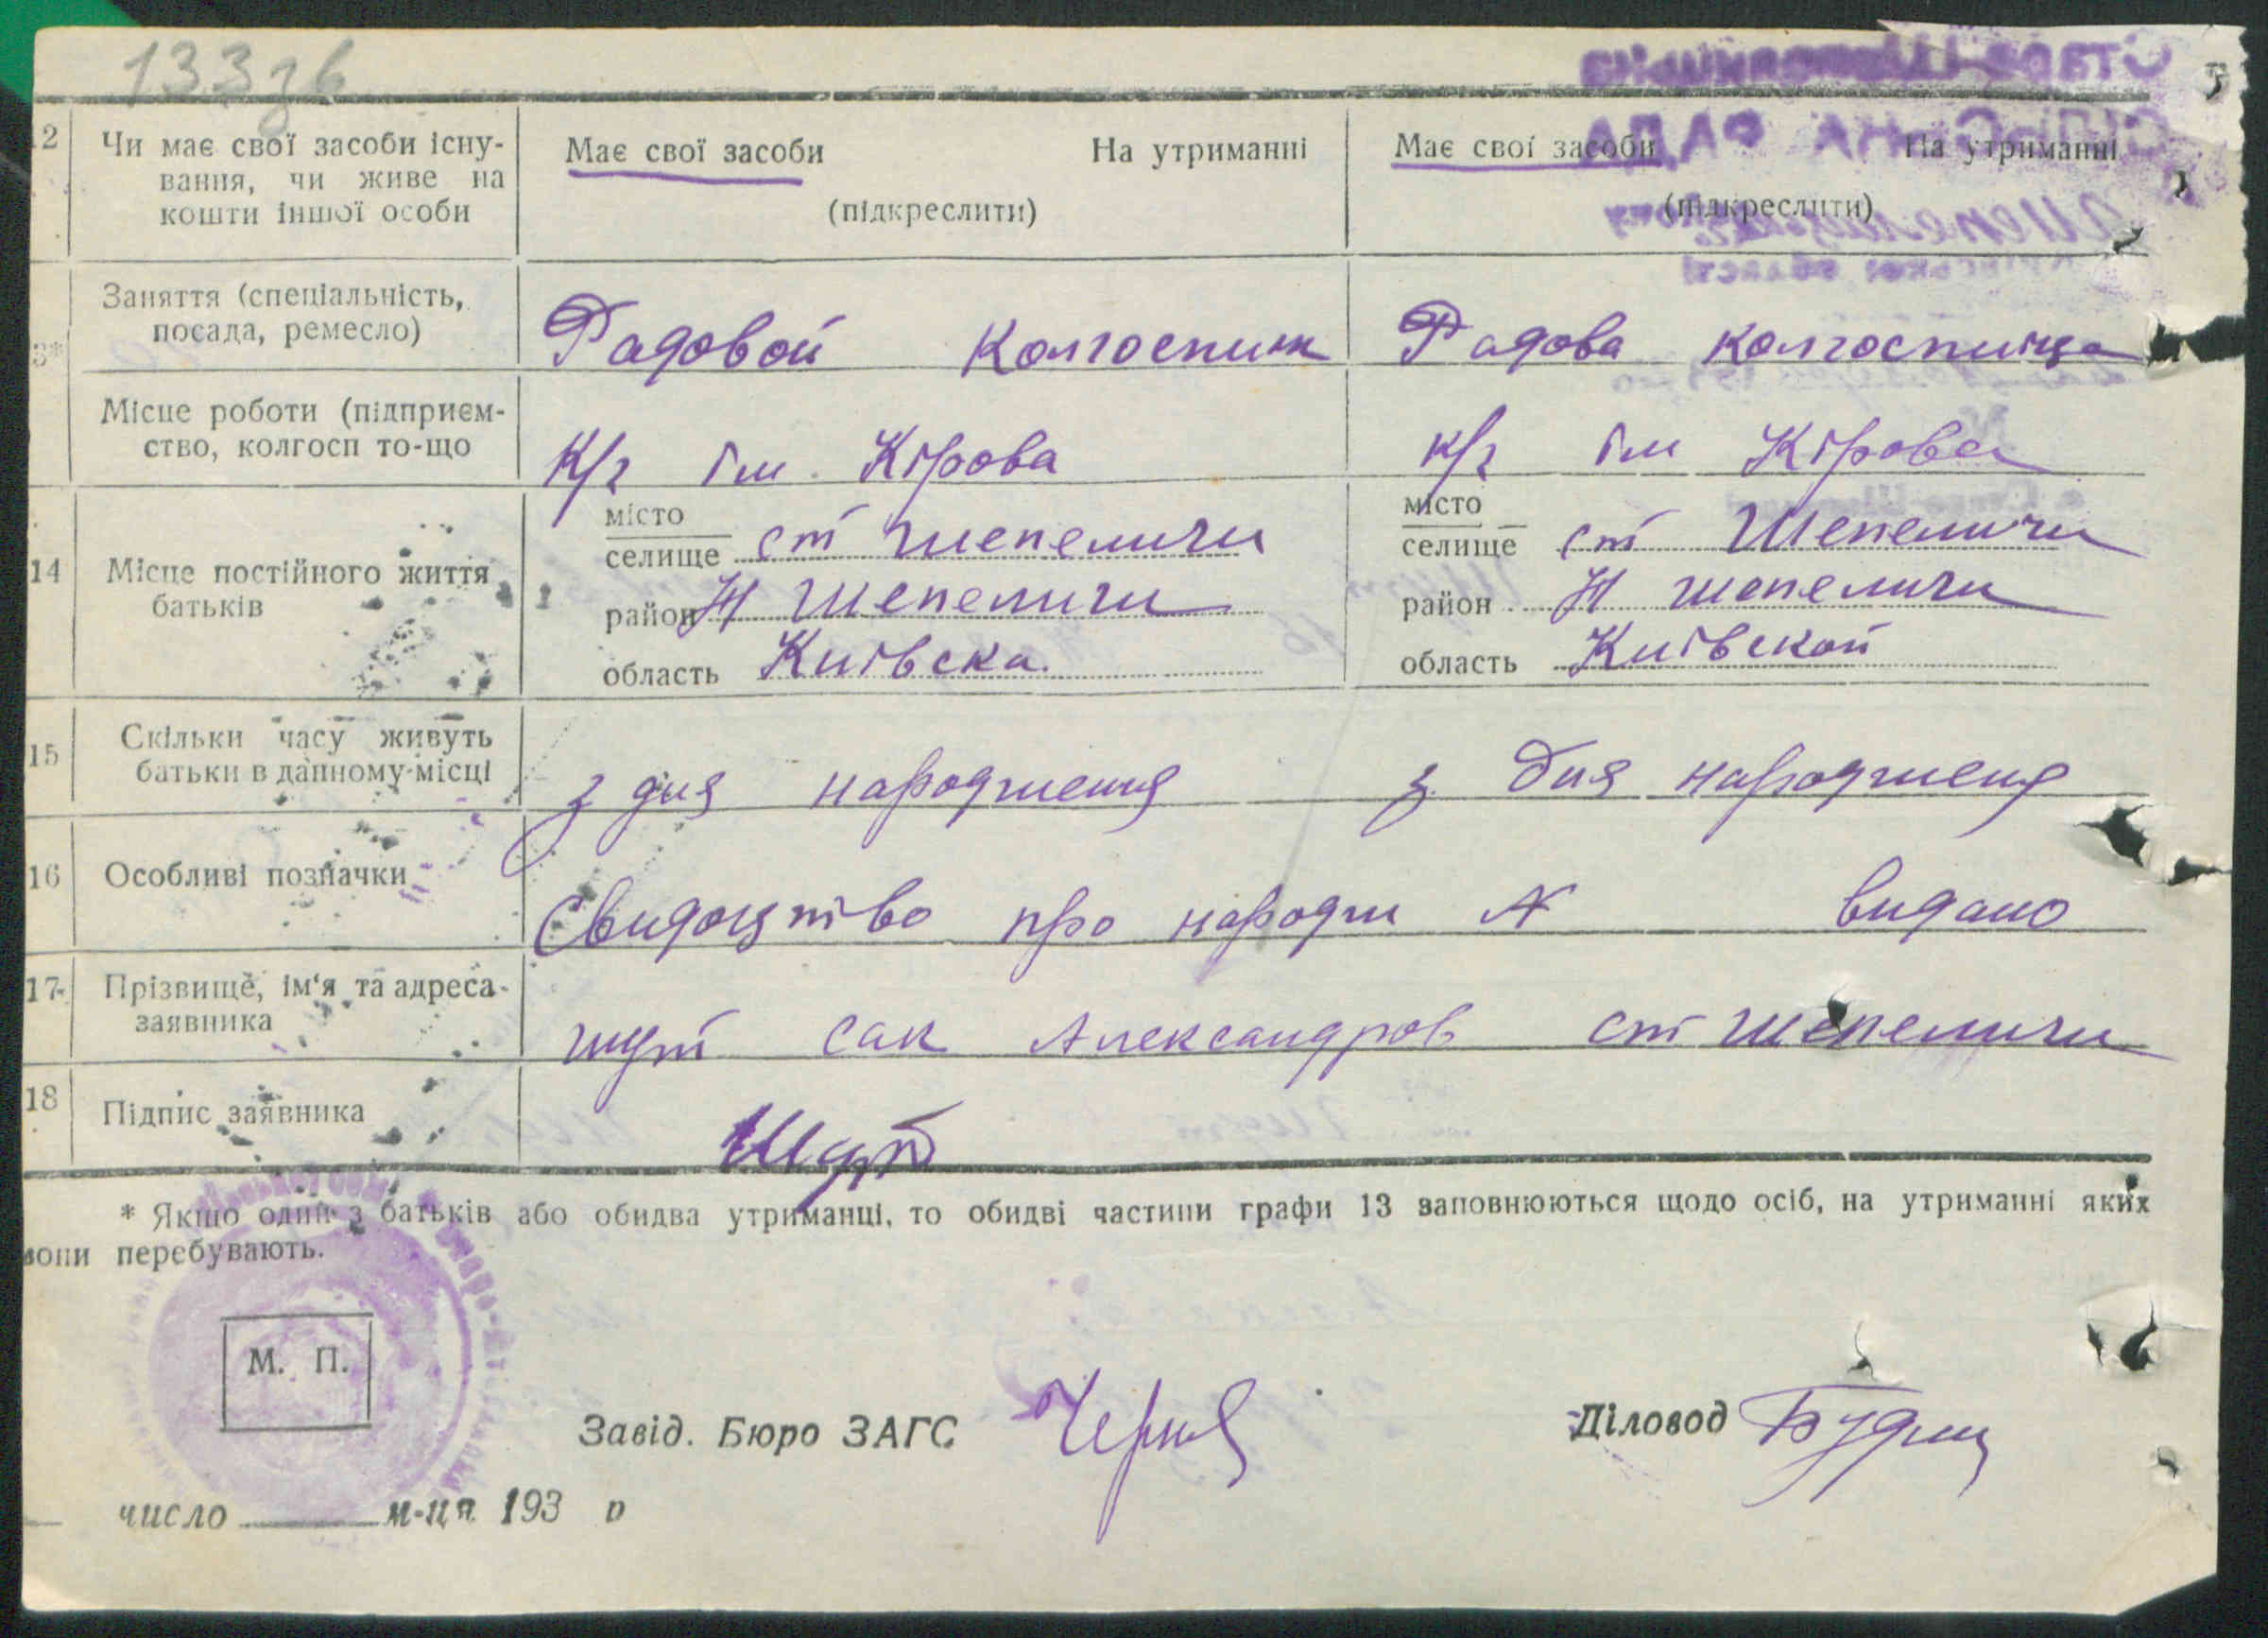 133зв
12 Чи має свої засоби існу-
вання, чи живе на
кошти іншої особи
Має свої засоби На утриманні
(підкреслити)
Має свої засоби На утриманні
(підкреслити)
13* Заняття (спеціальність,
посада, ремесло)
Радовой Колгоспник
Радова колгоспниця
Місце роботи (підприєм-
ство, колгосп то-що
К/г ім. Кірова
к/г ім Кірова
14 Місце постійного життя
батьків
місто
селище ст Шепеличи
район Н Шепеличи
область Київска.
місто
селище ст Шепеличи
район Н Шепеличи
область Київской
15 Скільки часу живуть
батьки в данному місці
з дня народження
з дня народженя
16 Особливі позначки
Свидоцтво про народж N видано
17 Прізвище, ім'я та адреса
заявника
Шут Сак Александров ст Шепеличи
18 Підпис заявника
Шут
* Якщо один з батьків або обидва утриманці, то обидві частини графи 13 заповнюються щодо осіб, на утриманні яких
вони перебувають.
М. П.
Завід. Бюро ЗАГС
Діловод
число м-ця 193 р